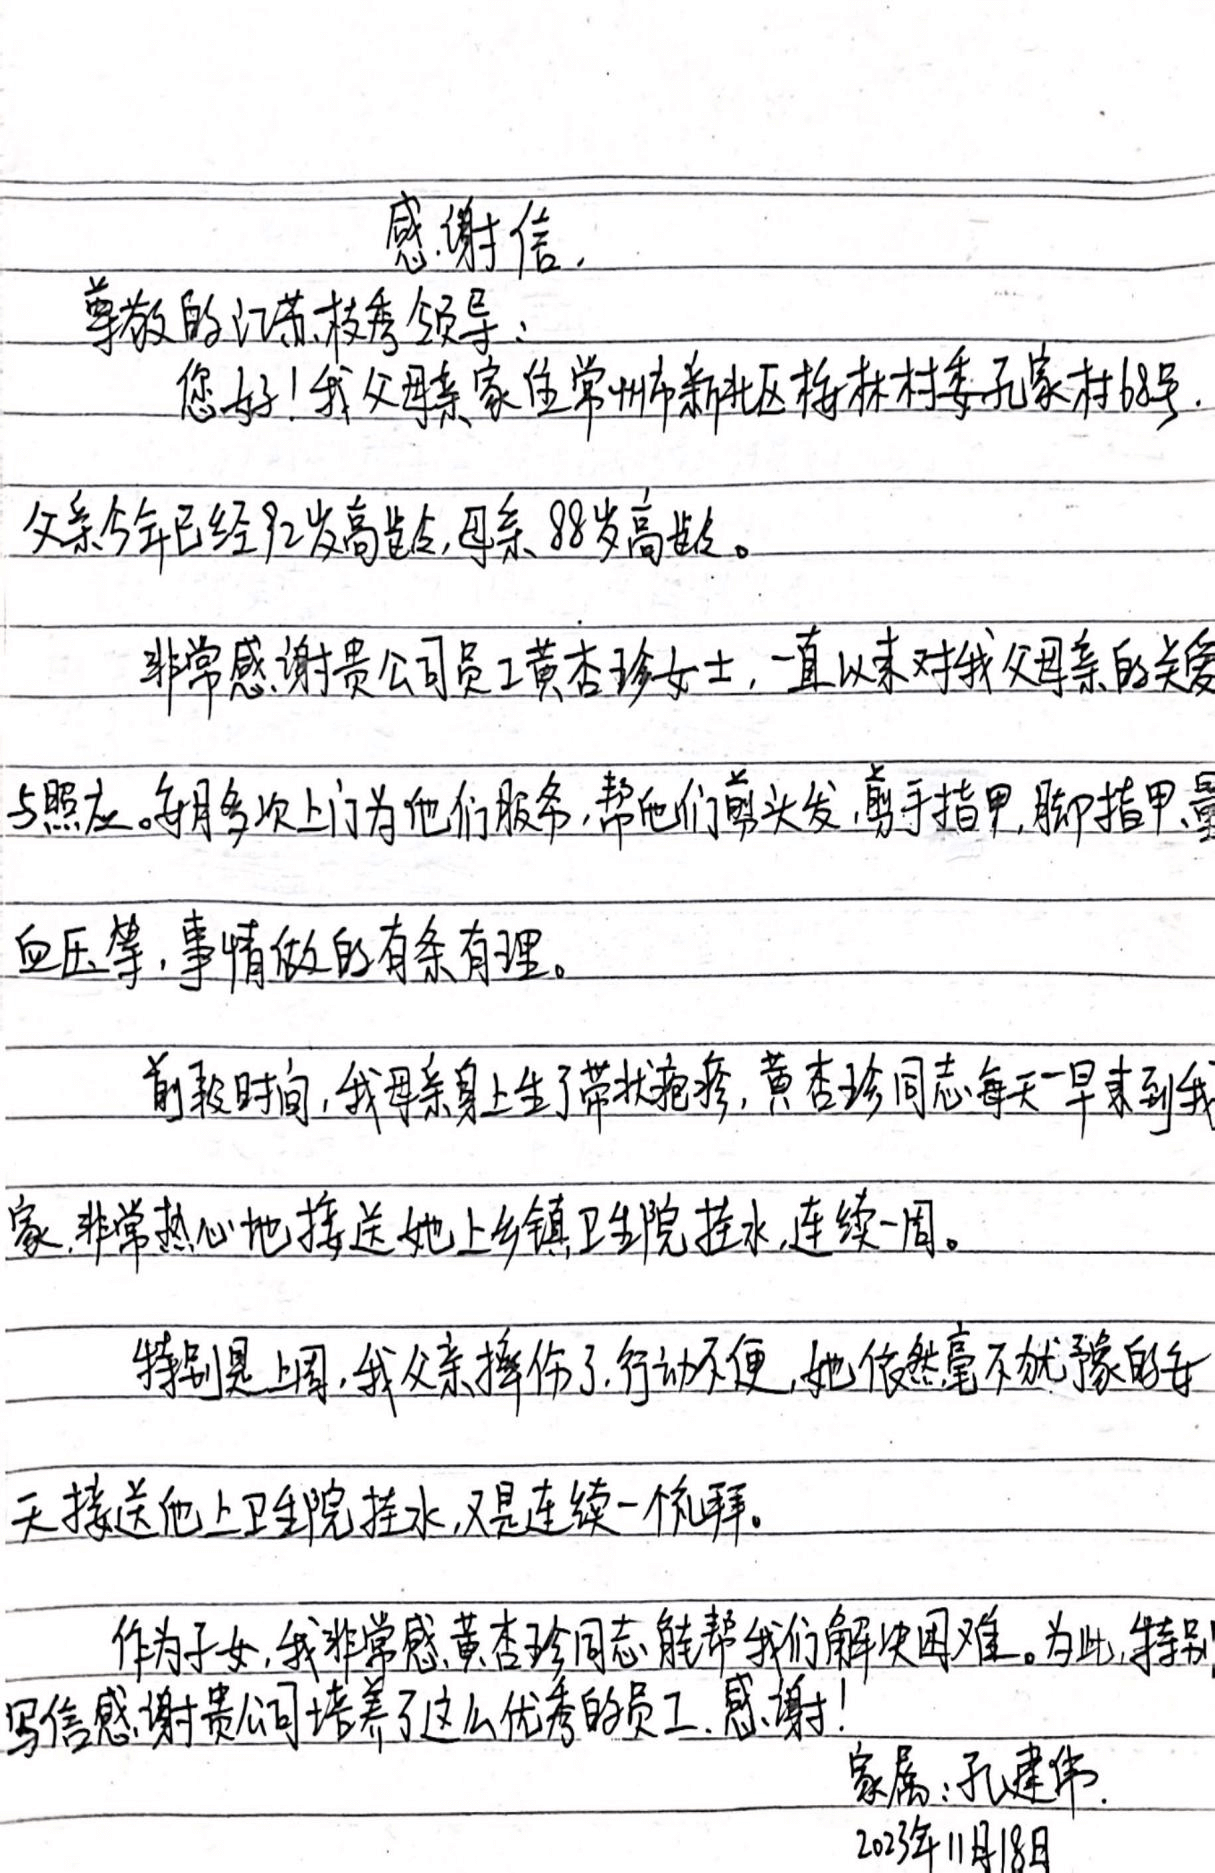 感谢信.
尊敬的江苏枝秀领导:
您好!我父母亲家住常州市新北区梅林村委孔家村68号.
父亲今年已经92岁高龄,母亲88岁高龄。
非常感谢贵公司员工黄杏珍女士,一直以来对我父母亲的关爱
与照应。每月多次上门为他们服务,帮他们剪头发,剪手指甲,脚指甲、量
血压等,事情做的有条有理。
前段时间,我母亲身上生了带状疱疹,黄杏珍同志每天一早来到我
家,非常热心地接送她上乡镇卫生院挂水,连续一周。
特别是上周,我父亲摔伤了,行动不便,她依然毫不犹豫的每
天接送他上卫生院挂水,又是连续一个礼拜。
作为子女,我非常感黄杏珍同志能帮我们解决困难。为此,特别
写信感谢贵公司培养了这么优秀的员工.感谢!
家属:孔建伟.
2023年11月18日